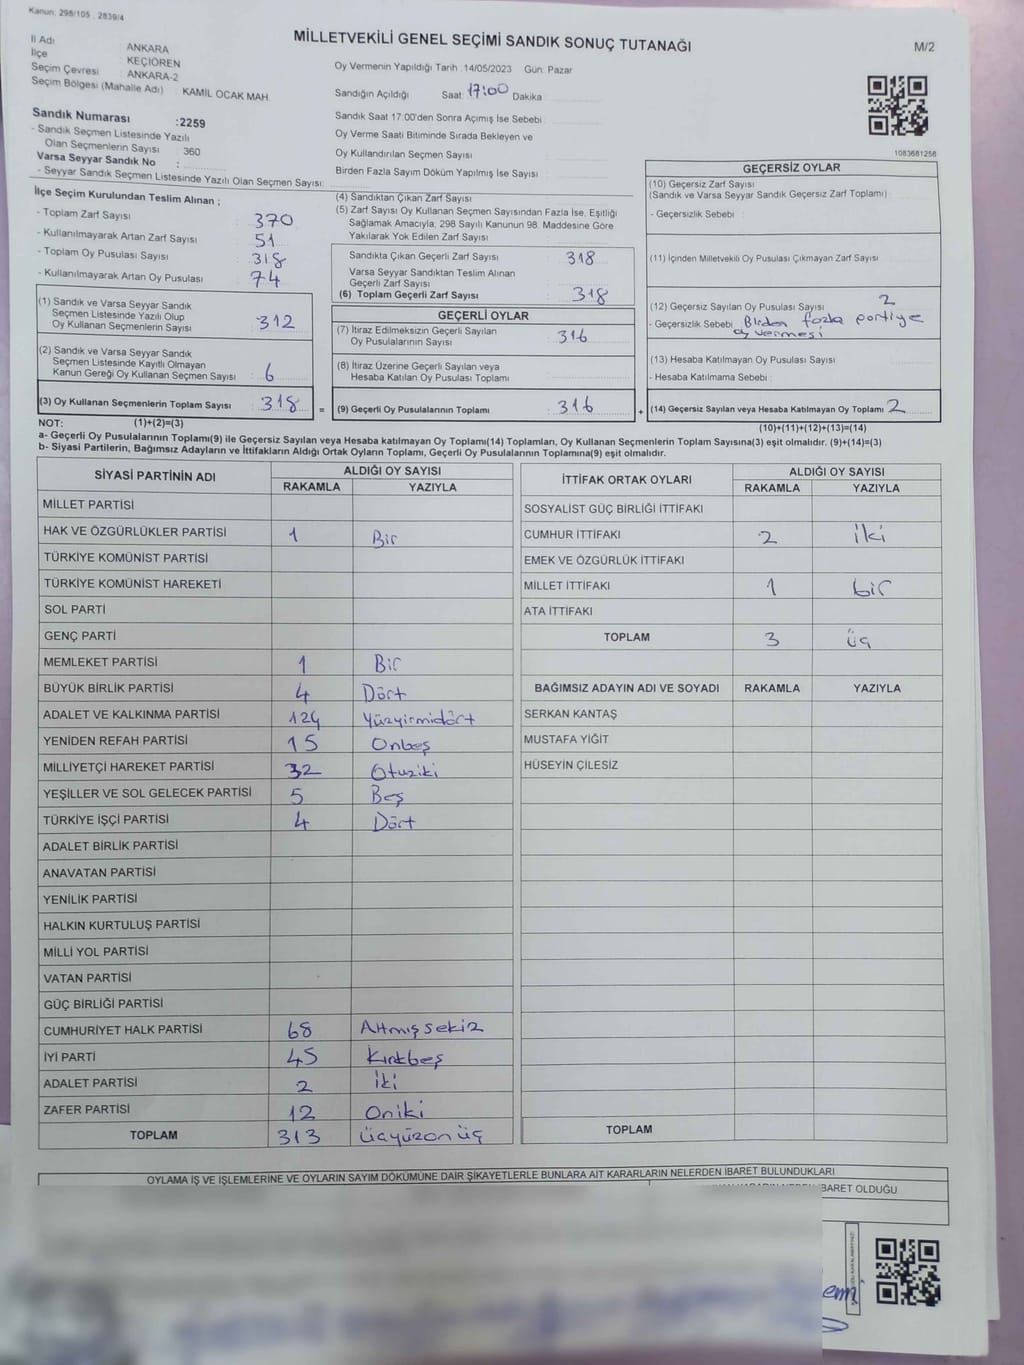 Kanun: 298/105 , 2839/4
MİLLETVEKİLİ GENEL SEÇİMİ SANDIK SONUÇ TUTANAĞI
M/2
İl Adı ANKARA
İlçe KEÇİÖREN
Seçim Çevresi ANKARA-2
Seçim Bölgesi (Mahalle Adı) : KAMİL OCAK MAH.
Oy Vermenin Yapıldığı Tarih :14/05/2023 Gün: Pazar
Sandığın Açıldığı Saat: 17:00 Dakika
Sandık Numarası :2259
- Sandık Seçmen Listesinde Yazılı
Olan Seçmenlerin Sayısı : 360
Varsa Seyyar Sandık No :
- Seyyar Sandık Seçmen Listesinde Yazılı Olan Seçmen Sayısı:
Sandık Saat 17:00'den Sonra Açımış İse Sebebi :
Oy Verme Saati Bitiminde Sırada Bekleyen ve
Oy Kullandırılan Seçmen Sayısı
Birden Fazla Sayım Döküm Yapılmış İse Sayısı :
1083681256
İlçe Seçim Kurulundan Teslim Alınan ;
- Toplam Zarf Sayısı : 370
- Kullanılmayarak Artan Zarf Sayısı : 51
- Toplam Oy Pusulası Sayısı : 318
- Kullanılmayarak Artan Oy Pusulası : 74
(1) Sandık ve Varsa Seyyar Sandık
Seçmen Listesinde Yazılı Olup
Oy Kullanan Seçmenlerin Sayısı : 312
(2) Sandık ve Varsa Seyyar Sandık
Seçmen Listesinde Kayıtlı Olmayan
Kanun Gereği Oy Kullanan Seçmen Sayısı : 6
(3) Oy Kullanan Seçmenlerin Toplam Sayısı : 318 =
(4) Sandıktan Çıkan Zarf Sayısı :
(5) Zarf Sayısı Oy Kullanan Seçmen Sayısından Fazla İse, Eşitliği
Sağlamak Amacıyla, 298 Sayılı Kanunun 98. Maddesine Göre
Yakılarak Yok Edilen Zarf Sayısı
Sandıkta Çıkan Geçerli Zarf Sayısı : 318
Varsa Seyyar Sandıktan Teslim Alınan
Geçerli Zarf Sayısı :
(6) Toplam Geçerli Zarf Sayısı : 318
GEÇERLİ OYLAR
(7) İtiraz Edilmeksizin Geçerli Sayılan
Oy Pusulalarının Sayısı : 316
(8) İtiraz Üzerine Geçerli Sayılan veya
Hesaba Katılan Oy Pusulası Toplamı :
(9) Geçerli Oy Pusulalarının Toplamı : 316 +
GEÇERSİZ OYLAR
(10) Geçersiz Zarf Sayısı
(Sandık ve Varsa Seyyar Sandık Geçersiz Zarf Toplamı) :
- Geçersizlik Sebebi :
(11) İçinden Milletvekili Oy Pusulası Çıkmayan Zarf Sayısı :
(12) Geçersiz Sayılan Oy Pusulası Sayısı : 2
- Geçersizlik Sebebi : Birden fazla partiye
oy vermesi
(13) Hesaba Katılmayan Oy Pusulası Sayısı :
- Hesaba Katılmama Sebebi :
(14) Geçersiz Sayılan veya Hesaba Katılmayan Oy Toplamı : 2
NOT: (1)+(2)=(3)
(10)+(11)+(12)+(13)=(14)
a- Geçerli Oy Pusulalarının Toplamı(9) ile Geçersiz Sayılan veya Hesaba katılmayan Oy Toplamı(14) Toplamları, Oy Kullanan Seçmenlerin Toplam Sayısına(3) eşit olmalıdır. (9)+(14)=(3)
b- Siyasi Partilerin, Bağımsız Adayların ve İttifakların Aldığı Ortak Oyların Toplamı, Geçerli Oy Pusulalarının Toplamına(9) eşit olmalıdır.
SİYASİ PARTİNİN ADI ALDIĞI OY SAYISI
RAKAMLA YAZIYLA
MİLLET PARTİSİ
HAK VE ÖZGÜRLÜKLER PARTİSİ 1 Bir
TÜRKİYE KOMÜNİST PARTİSİ
TÜRKİYE KOMÜNİST HAREKETİ
SOL PARTİ
GENÇ PARTİ
MEMLEKET PARTİSİ 1 Bir
BÜYÜK BİRLİK PARTİSİ 4 Dört
ADALET VE KALKINMA PARTİSİ 124 Yüzyirmidört
YENİDEN REFAH PARTİSİ 15 Onbeş
MİLLİYETÇİ HAREKET PARTİSİ 32 Otuziki
YEŞİLLER VE SOL GELECEK PARTİSİ 5 Beş
TÜRKİYE İŞÇİ PARTİSİ 4 Dört
ADALET BİRLİK PARTİSİ
ANAVATAN PARTİSİ
YENİLİK PARTİSİ
HALKIN KURTULUŞ PARTİSİ
MİLLİ YOL PARTİSİ
VATAN PARTİSİ
GÜÇ BİRLİĞİ PARTİSİ
CUMHURİYET HALK PARTİSİ 68 Altmışsekiz
İYİ PARTİ 45 Kırkbeş
ADALET PARTİSİ 2 İki
ZAFER PARTİSİ 12 Oniki
TOPLAM 313 Üçyüzonüç
İTTİFAK ORTAK OYLARI ALDIĞI OY SAYISI
RAKAMLA YAZIYLA
SOSYALİST GÜÇ BİRLİĞİ İTTİFAKI
CUMHUR İTTİFAKI 2 İki
EMEK VE ÖZGÜRLÜK İTTİFAKI
MİLLET İTTİFAKI 1 bir
ATA İTTİFAKI
TOPLAM 3 Üç
BAĞIMSIZ ADAYIN ADI VE SOYADI RAKAMLA YAZIYLA
SERKAN KANTAŞ
MUSTAFA YİĞİT
HÜSEYİN ÇİLESİZ
TOPLAM
OYLAMA İŞ VE İŞLEMLERİNE VE OYLARIN SAYIM DÖKÜMÜNE DAİR ŞİKAYETLERLE BUNLARA AİT KARARLARIN NELERDEN İBARET BULUNDUKLARI
İBARET OLDUĞU